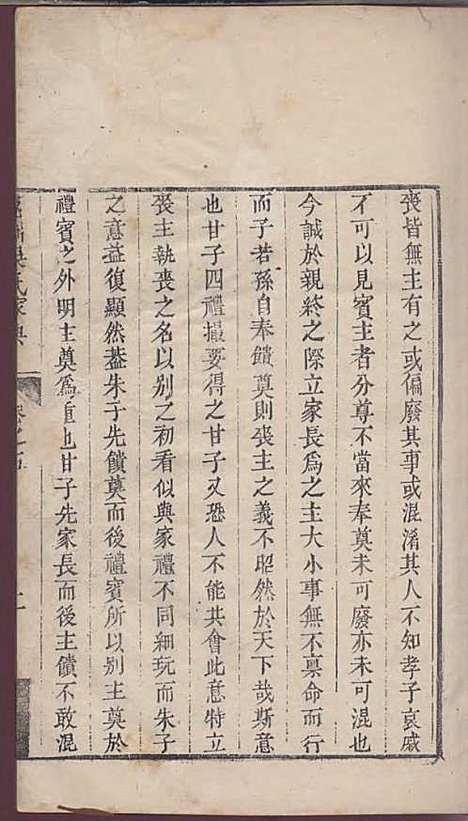 喪皆無主有之或偏廢其事或混淆其人不知孝子哀戚
不可以見賓主者分尊不當來奉奠未可廢亦未可混也
今誠於親終之際立家長為之主大小事無不稟命而行
而子若孫自奉饋奠則喪主之義不昭然於天下哉斯意
也甘子四禮撮要得之甘子又恐人不能共會此意特立
喪主執喪之名以别之初看似與家禮不同細玩而朱子
之意益復顯然葢朱子先饋奠而後禮賓所以别主奠於
禮賓之外明主奠爲重也甘子先家長而後主饋不敢混
吳氏家典
卷之五